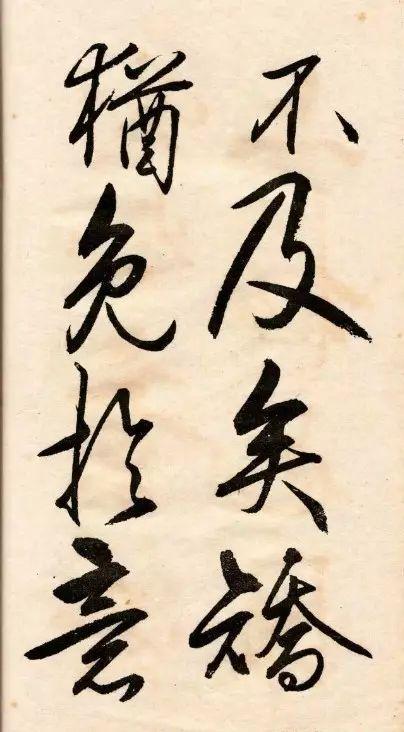 不及矣矯
猶免於意